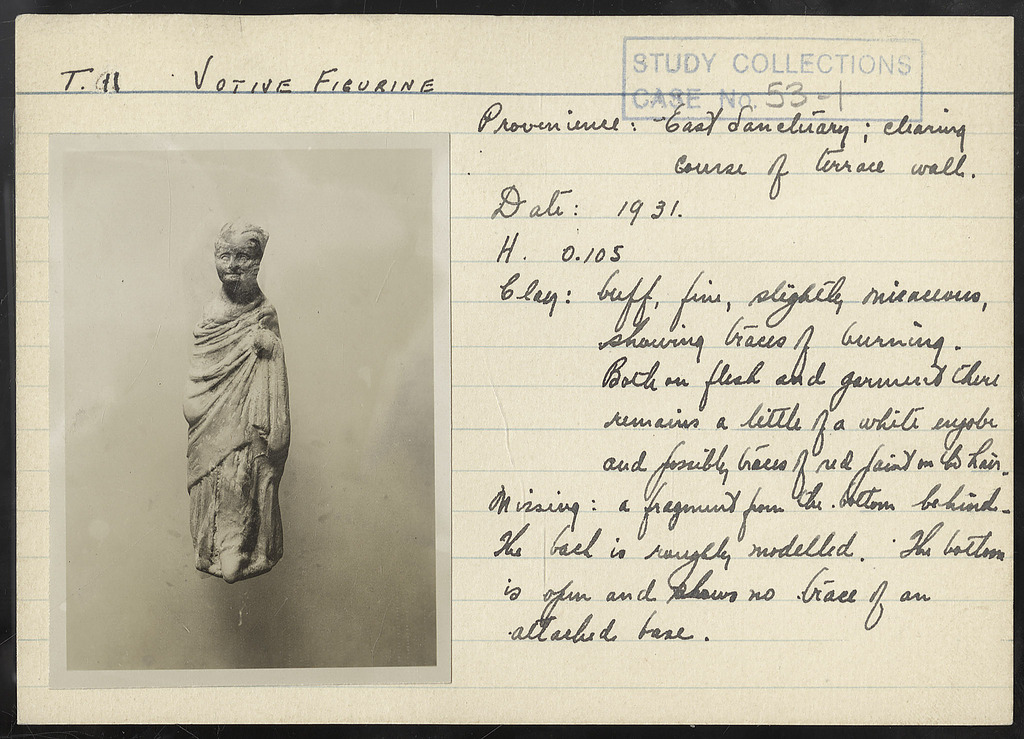 T. 11 VOTIVE FIGURINE
STUDY COLLECTIONS
CASE No. 53-1
Provenience: East Sanctuary; clearing
course of terrace wall.
Date: 1931.
H. 0.105
Clay: buff, fine, slightly micaceous,
showing traces of burning.
Both on flesh and garment there
remains a little of a white engobe
and possibly traces of red paint on hair.
Missing: a fragment from the bottom behind.
The back is roughly modelled. The bottom
is open and shows no trace of an
attached base.